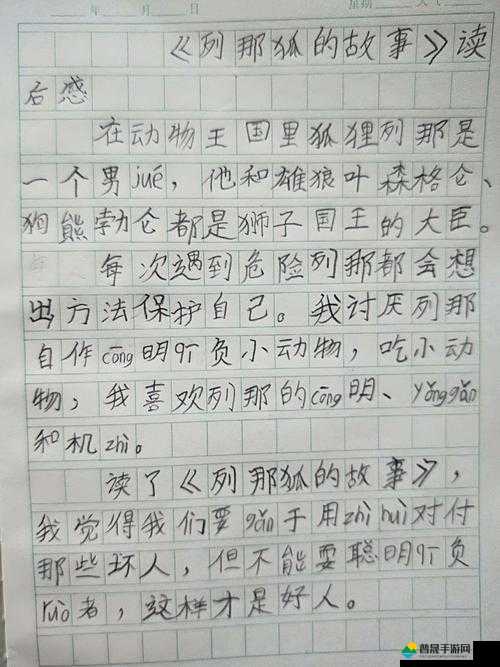 年 月 日 星期 天气
《列那狐的故事》读
后感
在动物王国里狐狸列那是
一个男jué，他和雄狼叶森格仑、
狗熊勃仑都是狮子国王的大臣。
每次遇到危险列那都会想
出方法保护自己。我讨厌列那
自作cōng明欺负小动物，吃小动
物，我喜欢列那的cōng明、yǒnggǎn
和机zhì。
读了《列那狐的故事》，
我觉得我们要gǎn于用zhì huì对付
那些坏人，但不能耍聪明欺负
ruò者，这样才是好人。
普晟手游网